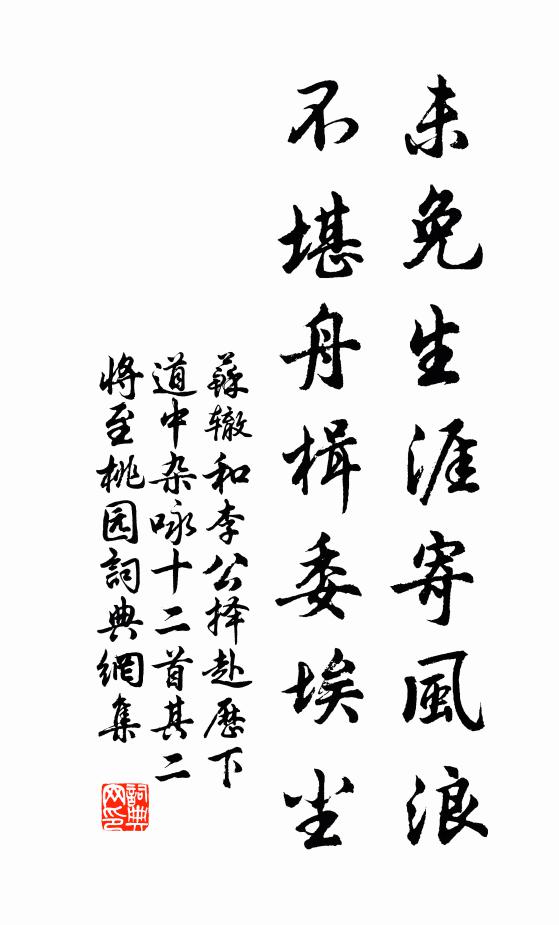 未免生涯寄風浪
不堪舟楫委埃尘
蘇辙和李公择赴歷下
道中杂咏十二首其二
将至桃园詞典網集
詞典
网印